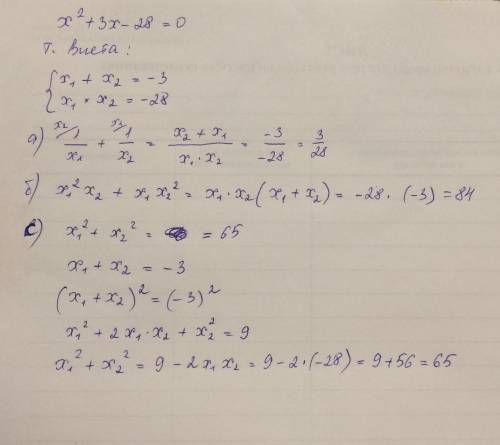 x² + 3x - 28 = 0
Т. Виета:
{ x₁ + x₂ = -3
x₁ · x₂ = -28
а) ˣ²⁄ 1/x₁ + ˣ¹⁄ 1/x₂ = (x₂ + x₁)/(x₁ · x₂) = -3/-28 = 3/28
б) x₁² x₂ + x₁ x₂² = x₁ · x₂ (x₁ + x₂) = -28 · (-3) = 84
с) x₁² + x₂² = = 65
x₁ + x₂ = -3
(x₁ + x₂)² = (-3)²
x₁² + 2x₁ · x₂ + x₂² = 9
x₁² + x₂² = 9 - 2x₁ x₂ = 9 - 2 · (-28) = 9 + 56 = 65